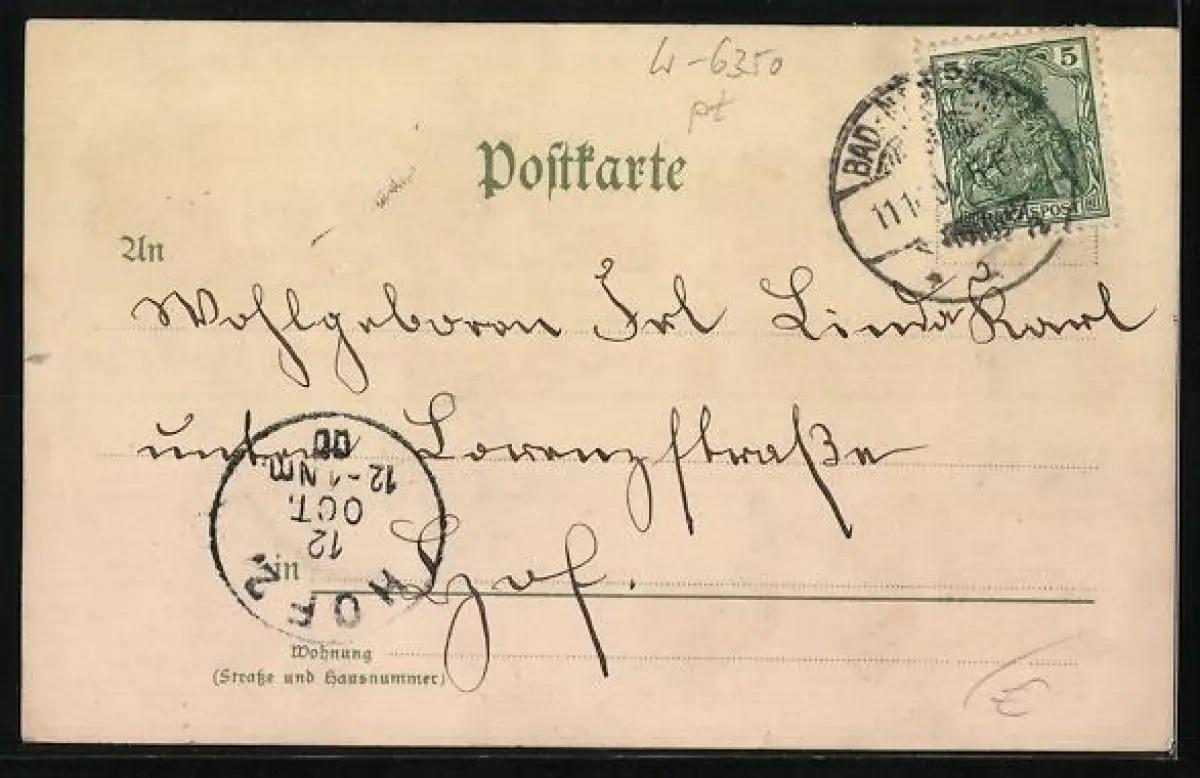 W-6350
pt
Postkarte
5 5
BAD-
REICHSPOST
An
Wohlgeboren Frl Linda Karl
untere Lorenzstraße
in Hof.
HOF 2.
12
OCT.
12-1 Nm
00
Wohnung
(Straße und Hausnummer)